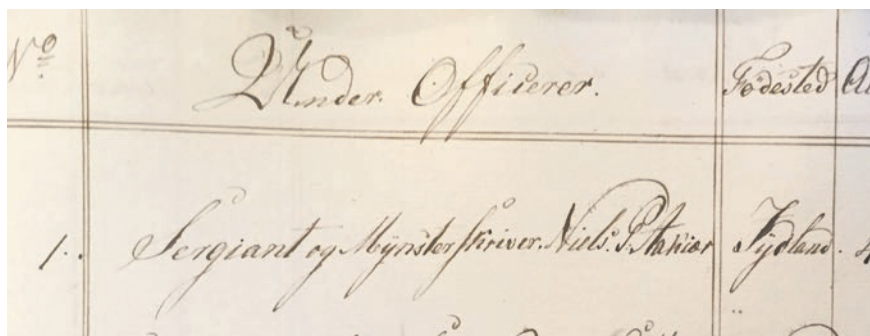 No. Under Officerer. Fødested
1. Sergiant og Mynsterskriver Niels. P. Jydland. 4